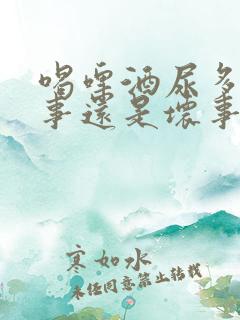 喝啤酒尿多
事还是坏事
寒如水
未经同意禁止转载